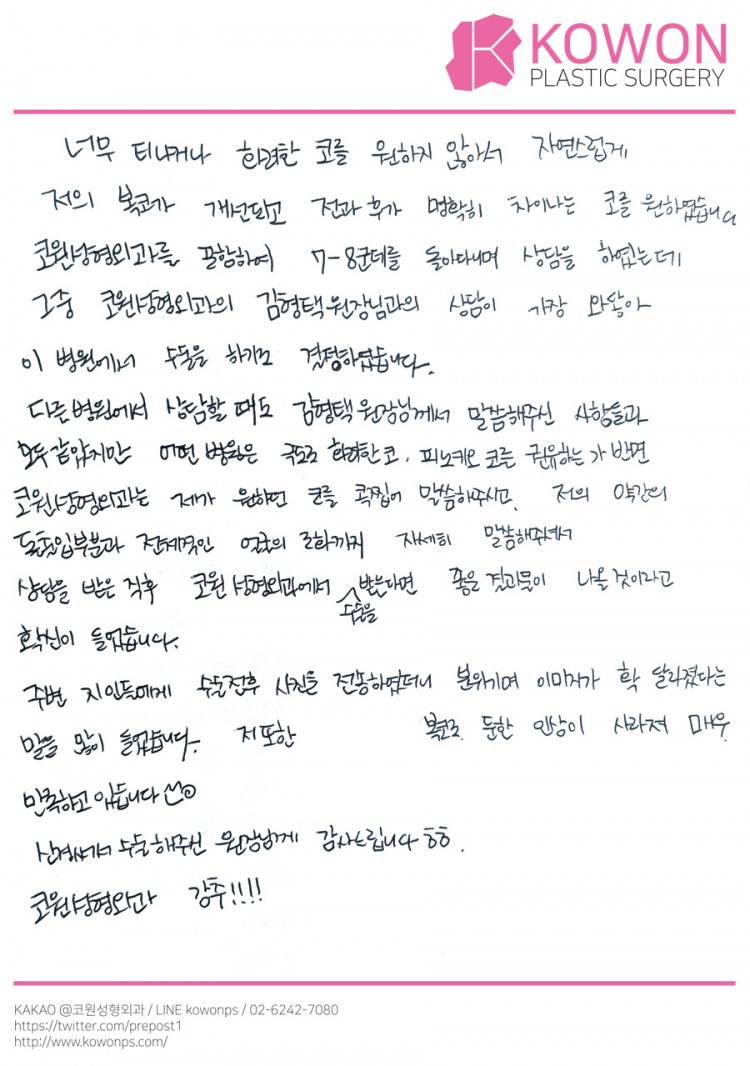 KOWON
PLASTIC SURGERY
너무 티나거나 화려한 코를 원하지 않아서 자연스럽게
저의 복코가 개선되고 전과 후가 명확히 차이나는 코를 원하였습니다
코원성형외과를 포함하여 7-8군데를 돌아다니며 상담을 하였는데
그중 코원성형외과의 김형택 원장님과의 상담이 가장 와닿아
이 병원에서 수술을 하기로 결정하였습니다.
다른병원에서 상담할 때도 김형택 원장님께서 말씀해주신 사항들과
모두 같았지만 어떤 병원은 극도로 화려한 코, 피노키오 코를 권유하는 가 반면
코원성형외과는 제가 원하던 코를 콕찝어 말씀해주시고, 저의 약간의
돌출입부분과 전체적인 얼굴의 조화까지 자세히 말씀해주셔서
상담을 받은 직후 코원성형외과에서 수술을 받는다면 좋은 결과물이 나올 것이라고
확신이 들었습니다.
주변 지인들에게 수술전후 사진을 전송하였더니 분위기며 이미지가 확 달라졌다는
말을 많이 들었습니다. 저 또한 복코로 둔한 인상이 사라져 매우
만족하고 있습니다
신경써서 수술해주신 원장님께 감사드립니다 ㅎㅎ.
코원성형외과 강추!!!!
KAKAO @코원성형외과 / LINE kowonps / 02-6242-7080
https://twitter.com/prepost1
http://www.kowonps.com/